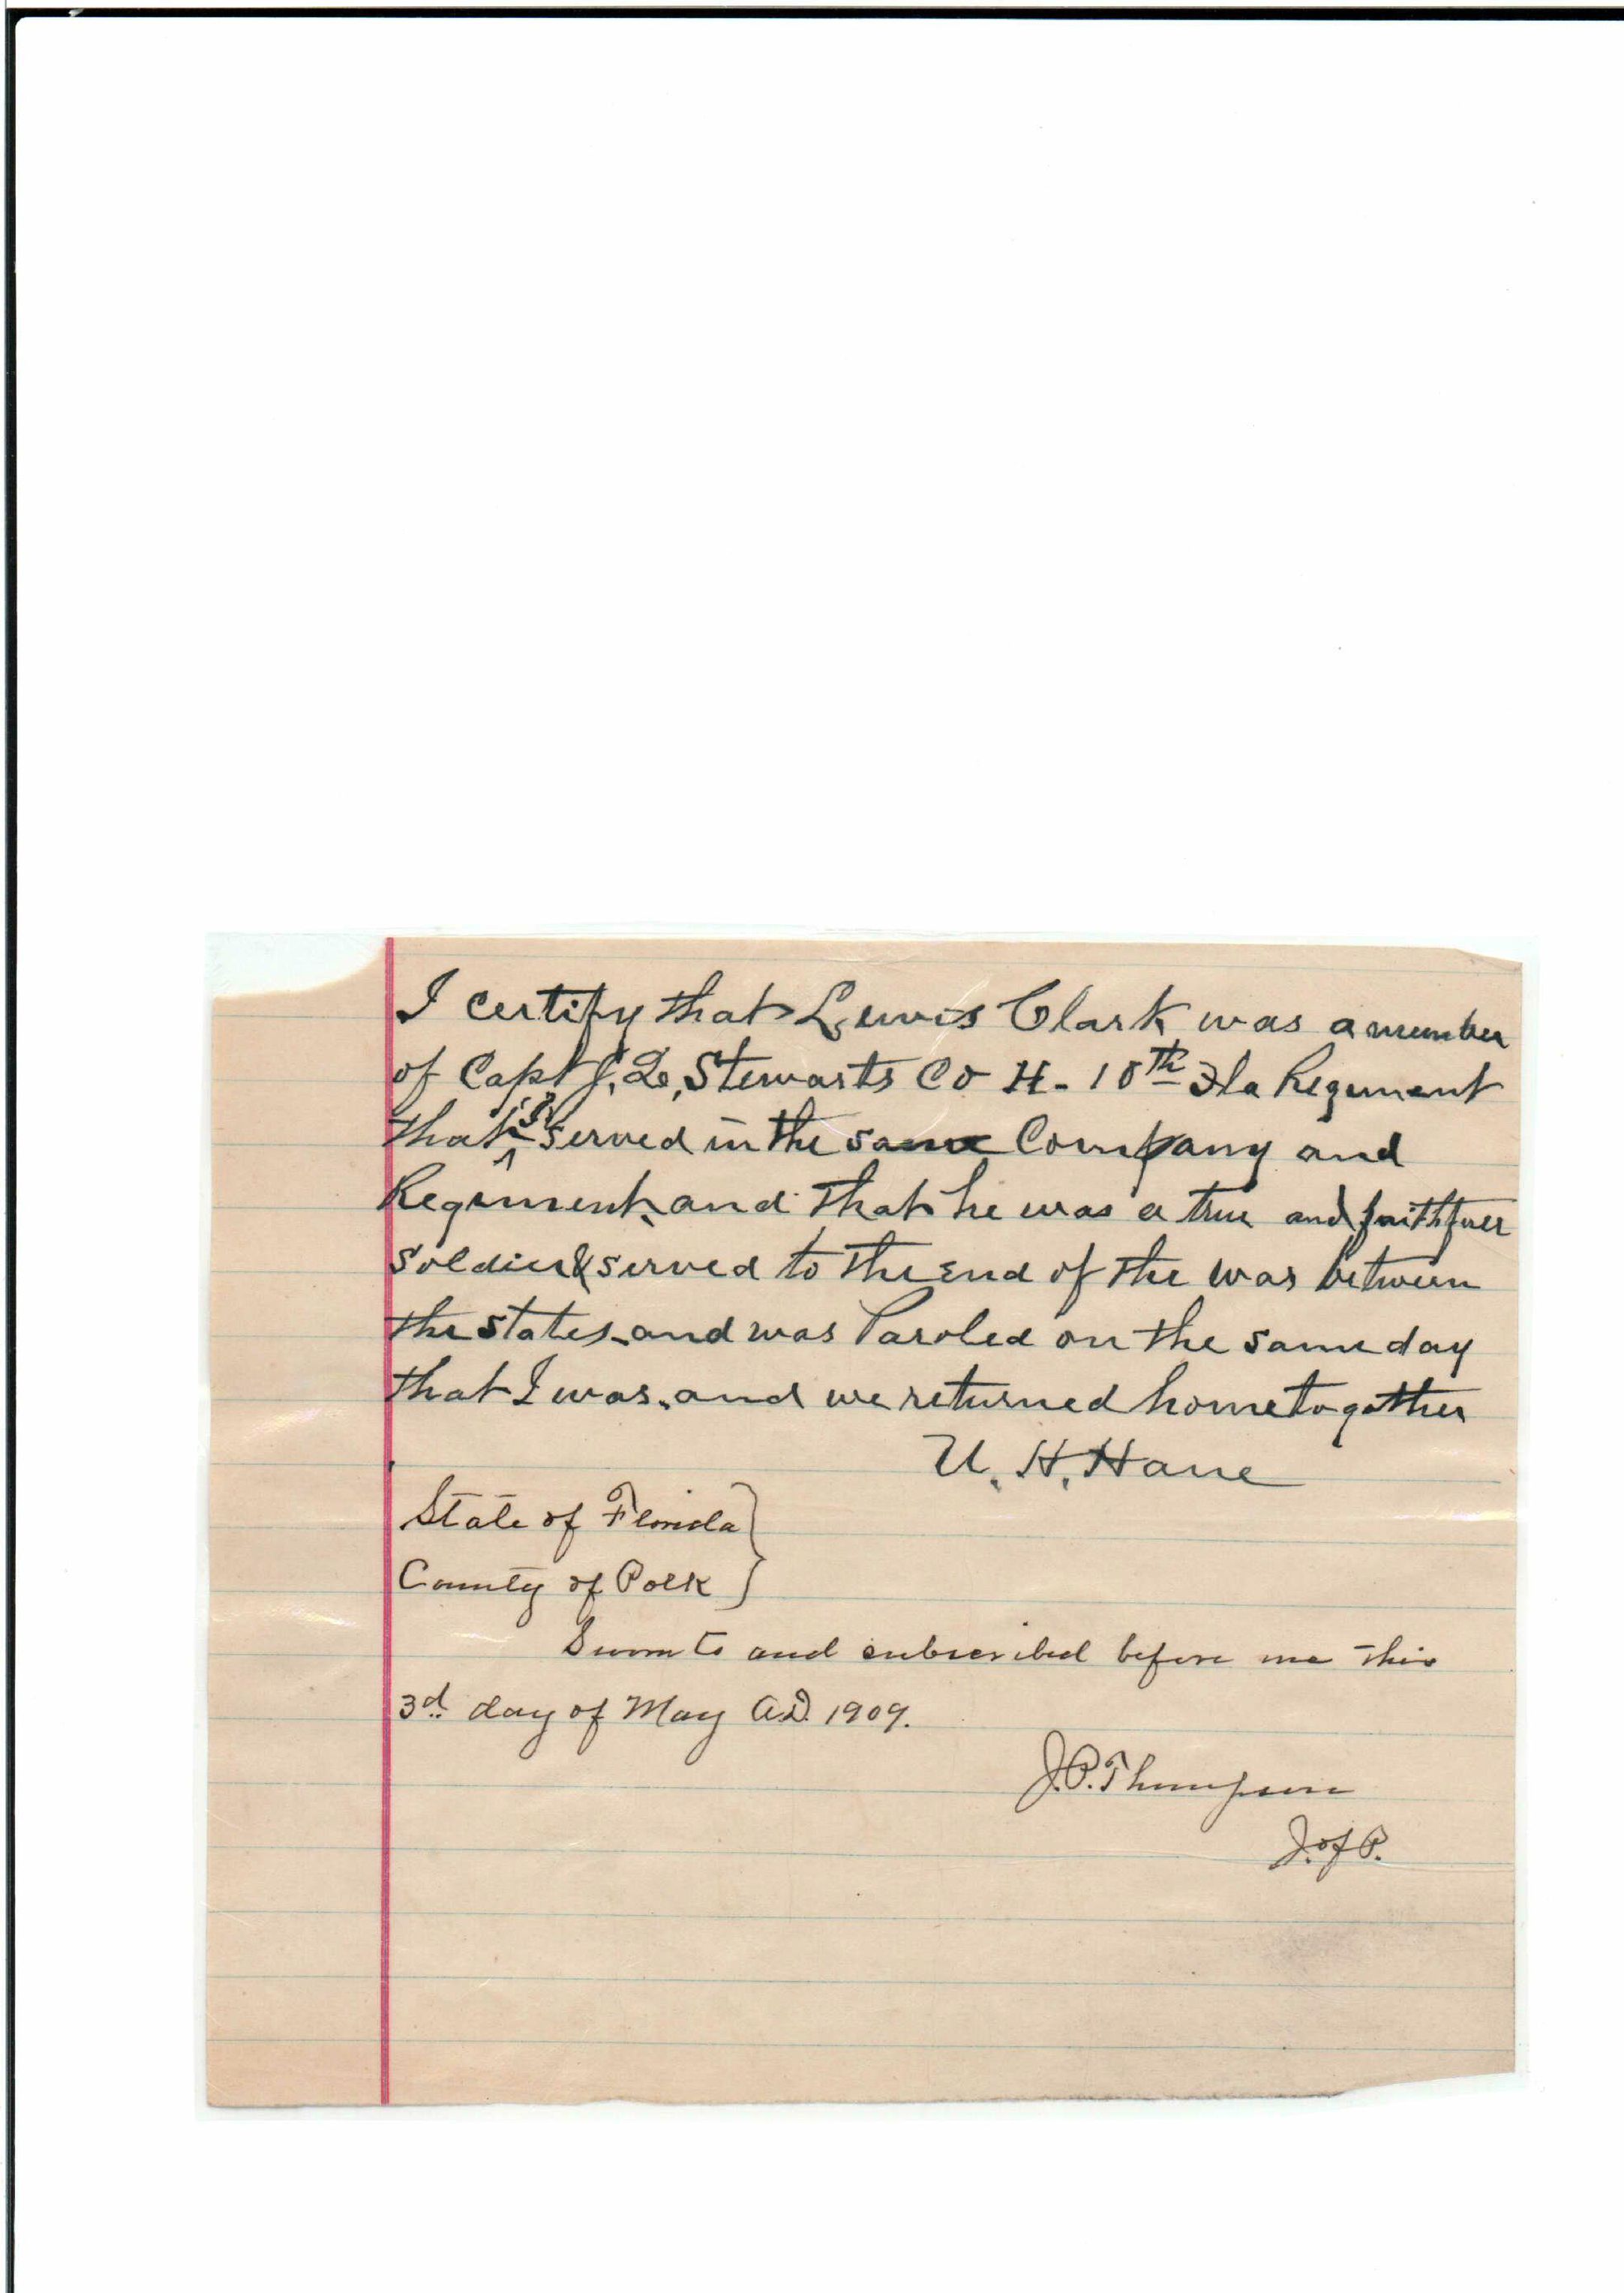 I certify that Lewis Clark was a member
of Capt J. Q. Stewarts Co H- 10th Fla Regiment
that I served in the same Company and
Regiment, and that he was a true and faithfull
soldier & served to the End of the war between
the States and was Paroled on the same day
that I was, and we returned home togather
U. H. Hane
State of Florida }
County of Polk }
Sworn to and subscribed before me this
3d day of May A.D. 1909.
J.P. Thompson
J. of P.